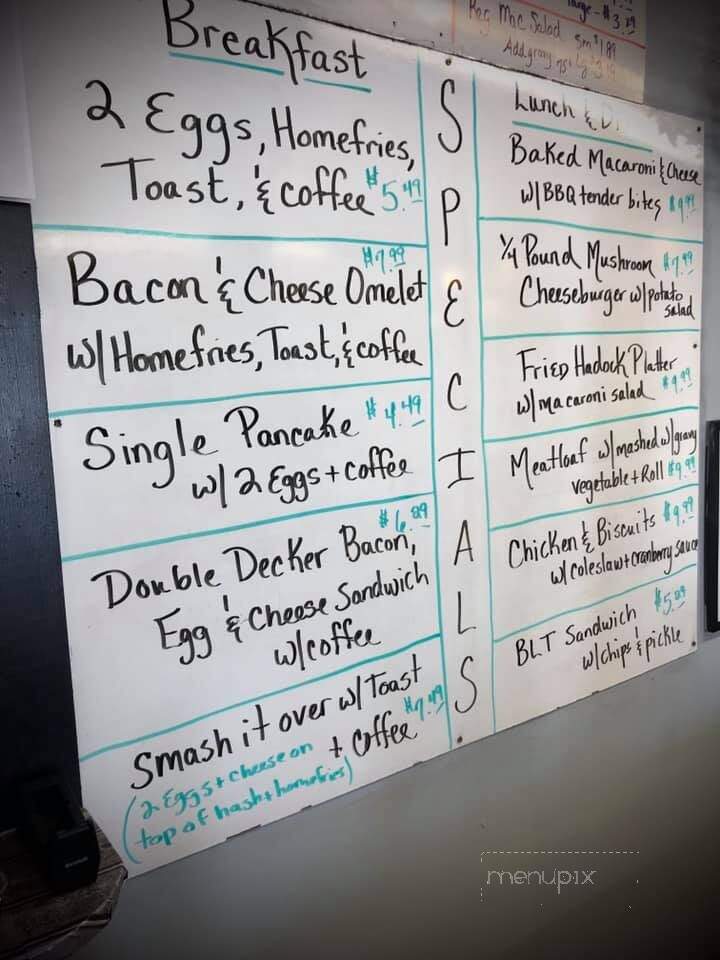 Reg Mac Salad sm $1.89
Breakfast
2 Eggs, Homefries,
Toast, & coffee $5.49
$7.99
Bacon & Cheese Omelet
w/Homefries, Toast, & coffee
Single Pancake $4.49
w/ 2 Eggs + coffee
$6.89
Double Decker Bacon,
Egg & Cheese Sandwich
w/coffee
Smash it over w/Toast
+ coffee $7.49
(2 Eggs + cheese on
top of hash + homefries)
SPECIALS
Lunch &
Baked Macaroni & Cheese
w/BBQ tender bites $9.99
1/4 Pound Mushroom $7.99
Cheeseburger w/potato
salad
Fried Hadock Platter
w/macaroni salad $9.99
Meatloaf w/mashed w/gravy
vegetable + Roll $9.99
Chicken & Biscuits $9.99
w/coleslaw + cranberry sauce
BLT Sandwich $5.89
w/chips & pickle
menupix